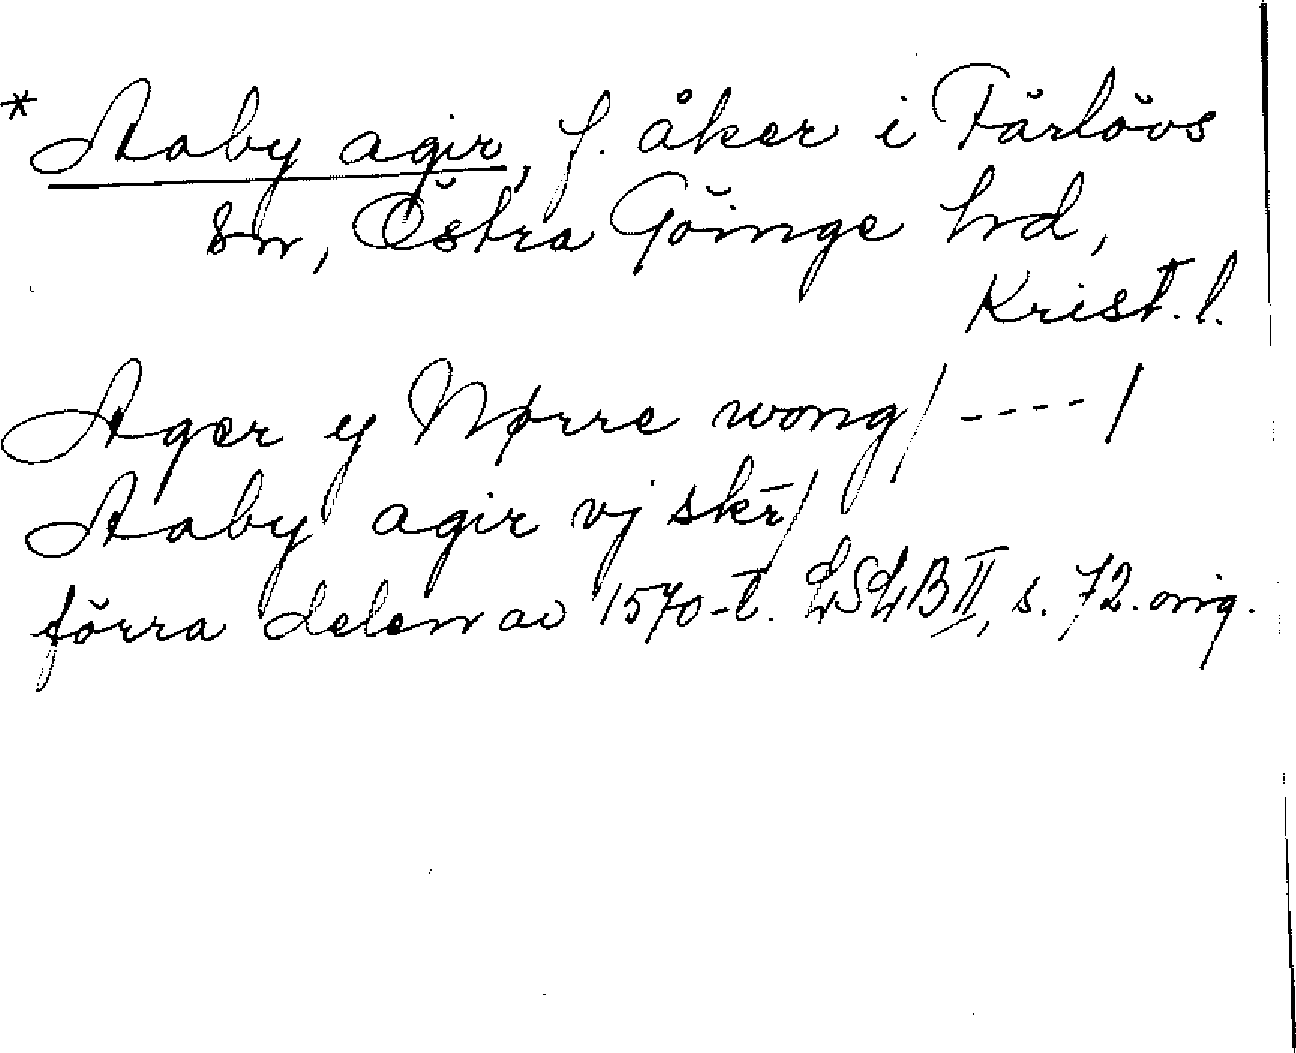 * Aaby agir, f. åker i Färlövs
sn, Östra Göinge hd,
Krist. l.
Ager y Nørre wong/----/
Aaby agir vj skr̄/
förra delen av 1570-t. LSLB II, s. 72. orig.